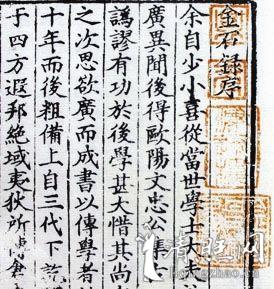 金石錄序
余自少小喜從當世學士大夫
廣異聞後得歐陽文忠公集
譌謬有功於後學甚大惜其尚
之次思欲廣而成書以傳學者
十年而後粗備上自三代下
于四方遐邦絕域夷狄所傳倉